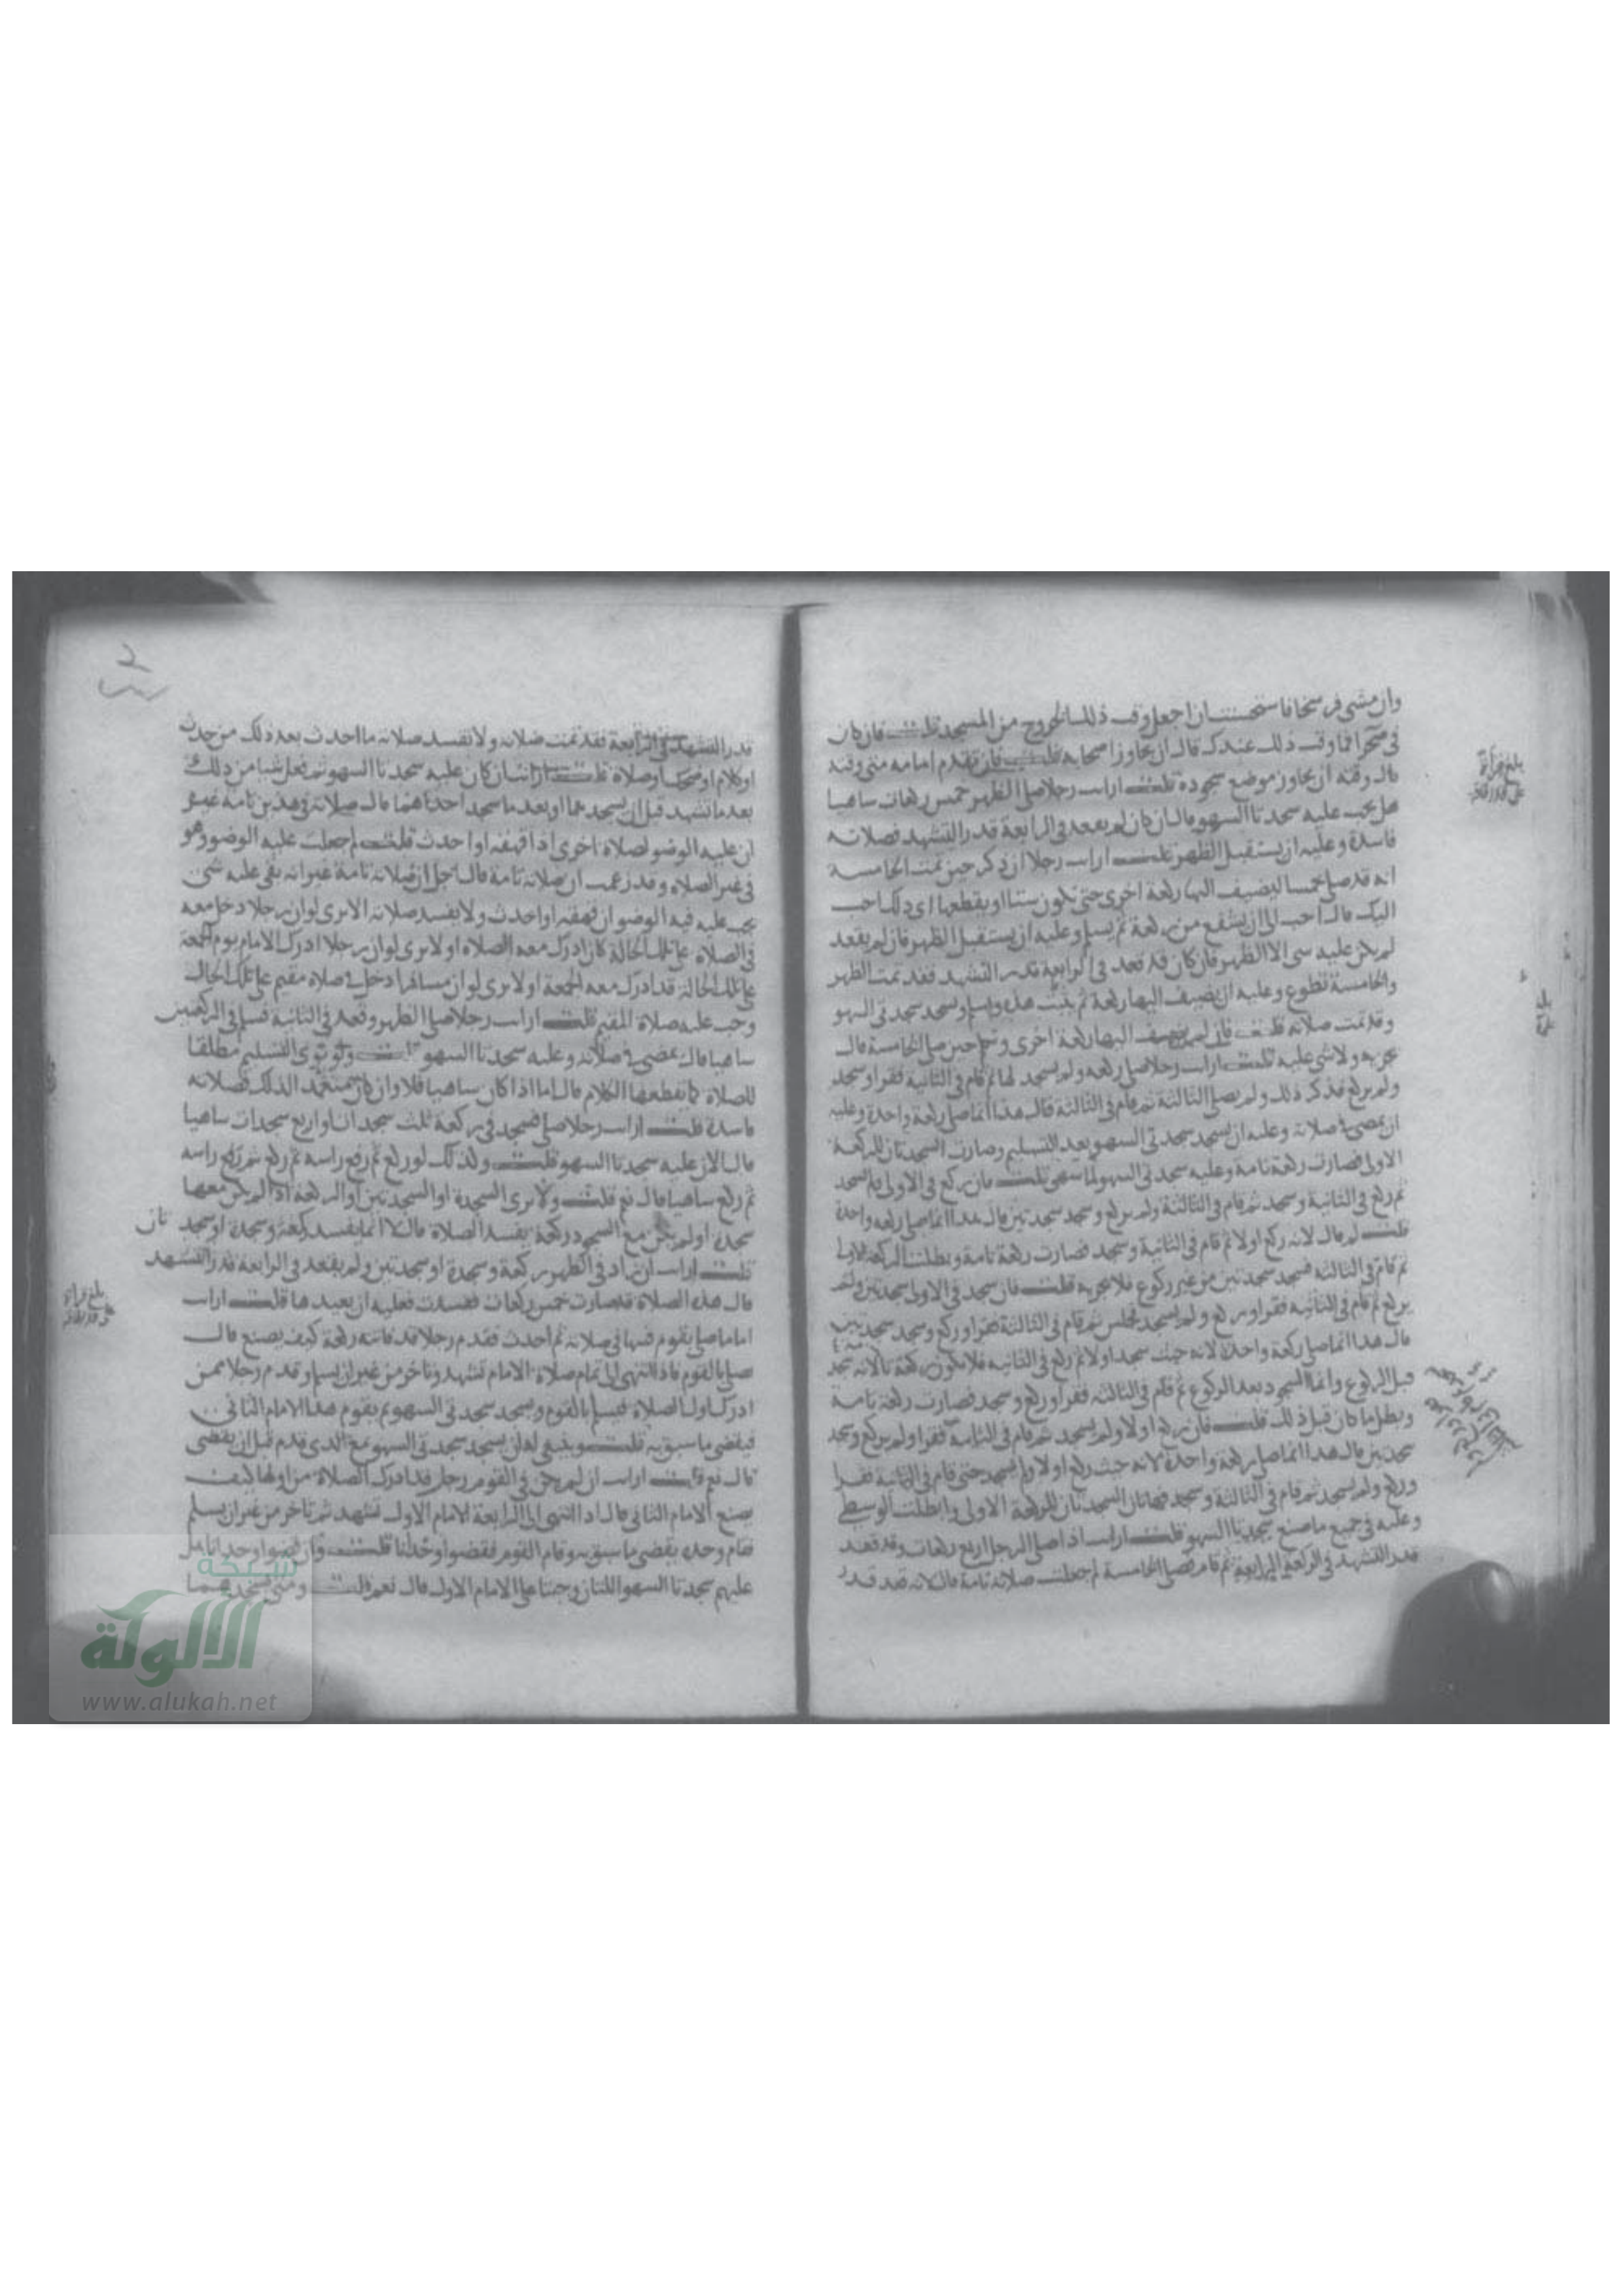 وان مشى فرسخا فاستحسنت ان اجعل وقت ذلك الخروج من المسجد قلت فان كان
في صحرا فما وقت ذلك عندك قال ان يجاوز اصحابه قلت فان تقدم امامه متى وقته
قال وقته ان يجاوز موضع سجوده قلت ارايت رجلا صلى الظهر خمس ركعات ساهيا
هل يجب عليه سجدتا السهو قال ان كان لم يقعد في الرابعة قدر التشهد فصلاته
فاسدة وعليه ان يستقبل الظهر قلت ارايت رجلا ان ذكر حين تمت الخامسة
انه قد صلى خمسا ايضيف اليها ركعة اخرى حتى تكون ستا او يقطعها اي ذلك احب
اليك قال احب الي ان يشفع من ركعة ثم يسلم وعليه ان يستقبل الظهر فان لم يقعد
لم يكن عليه شي الا الظهر فان كان قد قعد في الرابعة قدر التشهد فقد تمت الظهر
والخامسة تطوع وعليه ان يضيف اليها ركعة ثم يتشهد ويسلم ويسجد سجدتي السهو
وقد تمت صلاته قلت فان لم يضف اليها ركعة اخرى وتكلم حين صلى الخامسة قال
يجزيه ولا شي عليه قلت ارايت رجلا صلى ركعة ولم يسجد لها ثم قام في الثانية فقرا وسجد
ولم يركع فذكر ذلك ولم يصل الثالثة ثم قام في الثالثة قال هذا انما صلى ركعة واحدة وعليه
ان يمضي في صلاته وعليه ان يسجد سجدتي السهو بعد التسليم وصارت السجدتان للركعة
الاولى فصارت ركعة تامة وعليه سجدتي السهو لما سهى قلت فان ركع في الاولى ولم يسجد
ثم ركع في الثانية وسجد ثم قام في الثالثة ولم يركع وسجد سجدتين قال هذا انما صلى ركعة واحدة
قلت لم قال لانه ركع اولا ثم قام في الثانية وسجد فصارت ركعة تامة وبطلت الركعة الاولى
ثم قام في الثالثة فسجد سجدتين من غير ركوع فلا يجزيه قلت فان سجد في الاولى سجدتين ولم
يركع ثم قام في الثانية فقرا وركع ولم يسجد ثم قام في الثالثة فقرا وركع وسجد سجدتين
قال هذا انما صلى ركعة واحدة لانه حيث سجد اولا ثم ركع في الثانية فلا يكون ركعة لانه سجد
قبل الركوع وانما السجود بعد الركوع ثم قام في الثالثة فقرا وركع وسجد فصارت ركعة تامة
وبطل ما كان قبل ذلك قلت فان ركع اولا ولم يسجد ثم قام في الثانية فقرا ولم يركع وسجد
سجدتين قال هذا انما صلى ركعة واحدة لانه حيث ركع اولا ولم يسجد حتى قام في الثانية فقرا
وركع ولم يسجد ثم قام في الثالثة وسجد فهاتان السجدتان للركعة الاولى وابطلت الوسطى
وعليه في جميع ما صنع سجدتا السهو قلت ارايت اذا صلى الرجل اربع ركعات وقد قعد
قدر التشهد في الركعة الرابعة ثم قام فصلى الخامسة لم جعلت صلاته تامة قال لانه قعد قدر
بلغ قراءة
قدر التشهد في الرابعة فقد تمت صلاته ولا تفسد صلاته ما احدث بعد ذلك من حدث
او كلام او ضحك او صلاة قلت ارايت ان كان عليه سجدتا السهو ثم فعل شيا من ذلك
بعد ما تشهد قبل ان يسجدهما او بعد ما سجد احداهما قال صلاته في هذين تامة غير
ان عليه الوضو لصلاة اخرى اذا قهقه او احدث قلت لم جعلت عليه الوضو وهو
في غير الصلاة وقد زعمت ان صلاته تامة قال اجل ان صلاته تامة غير انه بقي عليه شي
يجب عليه فيه الوضو ان قهقه او احدث ولا يفسد صلاته الا ترى لو ان رجلا دخل معه
في الصلاة على تلك الحالة كان ادرك معه الصلاة او لا ترى لو ان رجلا ادرك الامام يوم الجمعة
على تلك الحالة قد ادرك معه الجمعة او لا ترى لو ان مسافرا دخل في صلاة مقيم على تلك الحال
وجب عليه صلاة المقيم قلت ارايت رجلا صلى الظهر وقعد في الثانية فسلم في الركعتين
ساهيا قال يمضي في صلاته وعليه سجدتا السهو قلت ولو نوى التسليم مطلقا
للصلاة كما يقطعها الكلام قال اما اذا كان ساهيا فلا وان كان متعمدا لذلك فصلاته
فاسدة قلت ارايت رجلا صلى فسجد في ركعة ثلث سجدات او اربع سجدات ساهيا
قال الان عليه سجدتا السهو قلت وكذلك لو ركع ثم رفع راسه ثم ركع ثم رفع راسه
ثم ركع ساهيا قال نعم قلت ولا ترى السجدة او السجدتين او الركعة اذا لم يكن معها
سجدة او لم يكن مع السجود ركعة يفسد الصلاة قال لا انما يفسد ركعة وسجدة او سجدتان
قلت ارايت ان زاد في الظهر ركعة وسجدة او سجدتين ولم يقعد في الرابعة قدر التشهد
قال هذه الصلاة قد صارت خمس ركعات ففسدت فعليه ان يعيدها قلت ارايت
اماما صلى بقوم فسها في صلاته ثم احدث فقدم رجلا قد فاتته ركعة كيف يصنع قال
يصلي بالقوم فاذا انتهى الى تمام صلاة الامام تشهد وتاخر من غير ان يسلم وقدم رجلا ممن
ادرك اول الصلاة فيسلم بالقوم ويسجد سجدتي السهو ثم يقوم هذا الامام الثاني
فيقضي ما سبق به قلت وينبغي له ان يسجد سجدتي السهو مع الذي قدم قبل ان يقضي
قال نعم قلت ارايت ان لم يكن في القوم رجل قد ادرك الصلاة من اولها كيف
يصنع الامام الثاني قال اذا انتهى الى الرابعة للامام الاول تشهد ثم تاخر من غير ان يسلم
فقام وحده يقضي ما سبق به وقام القوم فقضوا وحدانا قلت وان قضوا وحدانا هل
عليهم سجدتا السهو اللتان وجبتا على الامام الاول قال نعم قلت ومتى يسجدهما
بلغ قراءة
شبكة
الألوكة
www.alukah.net